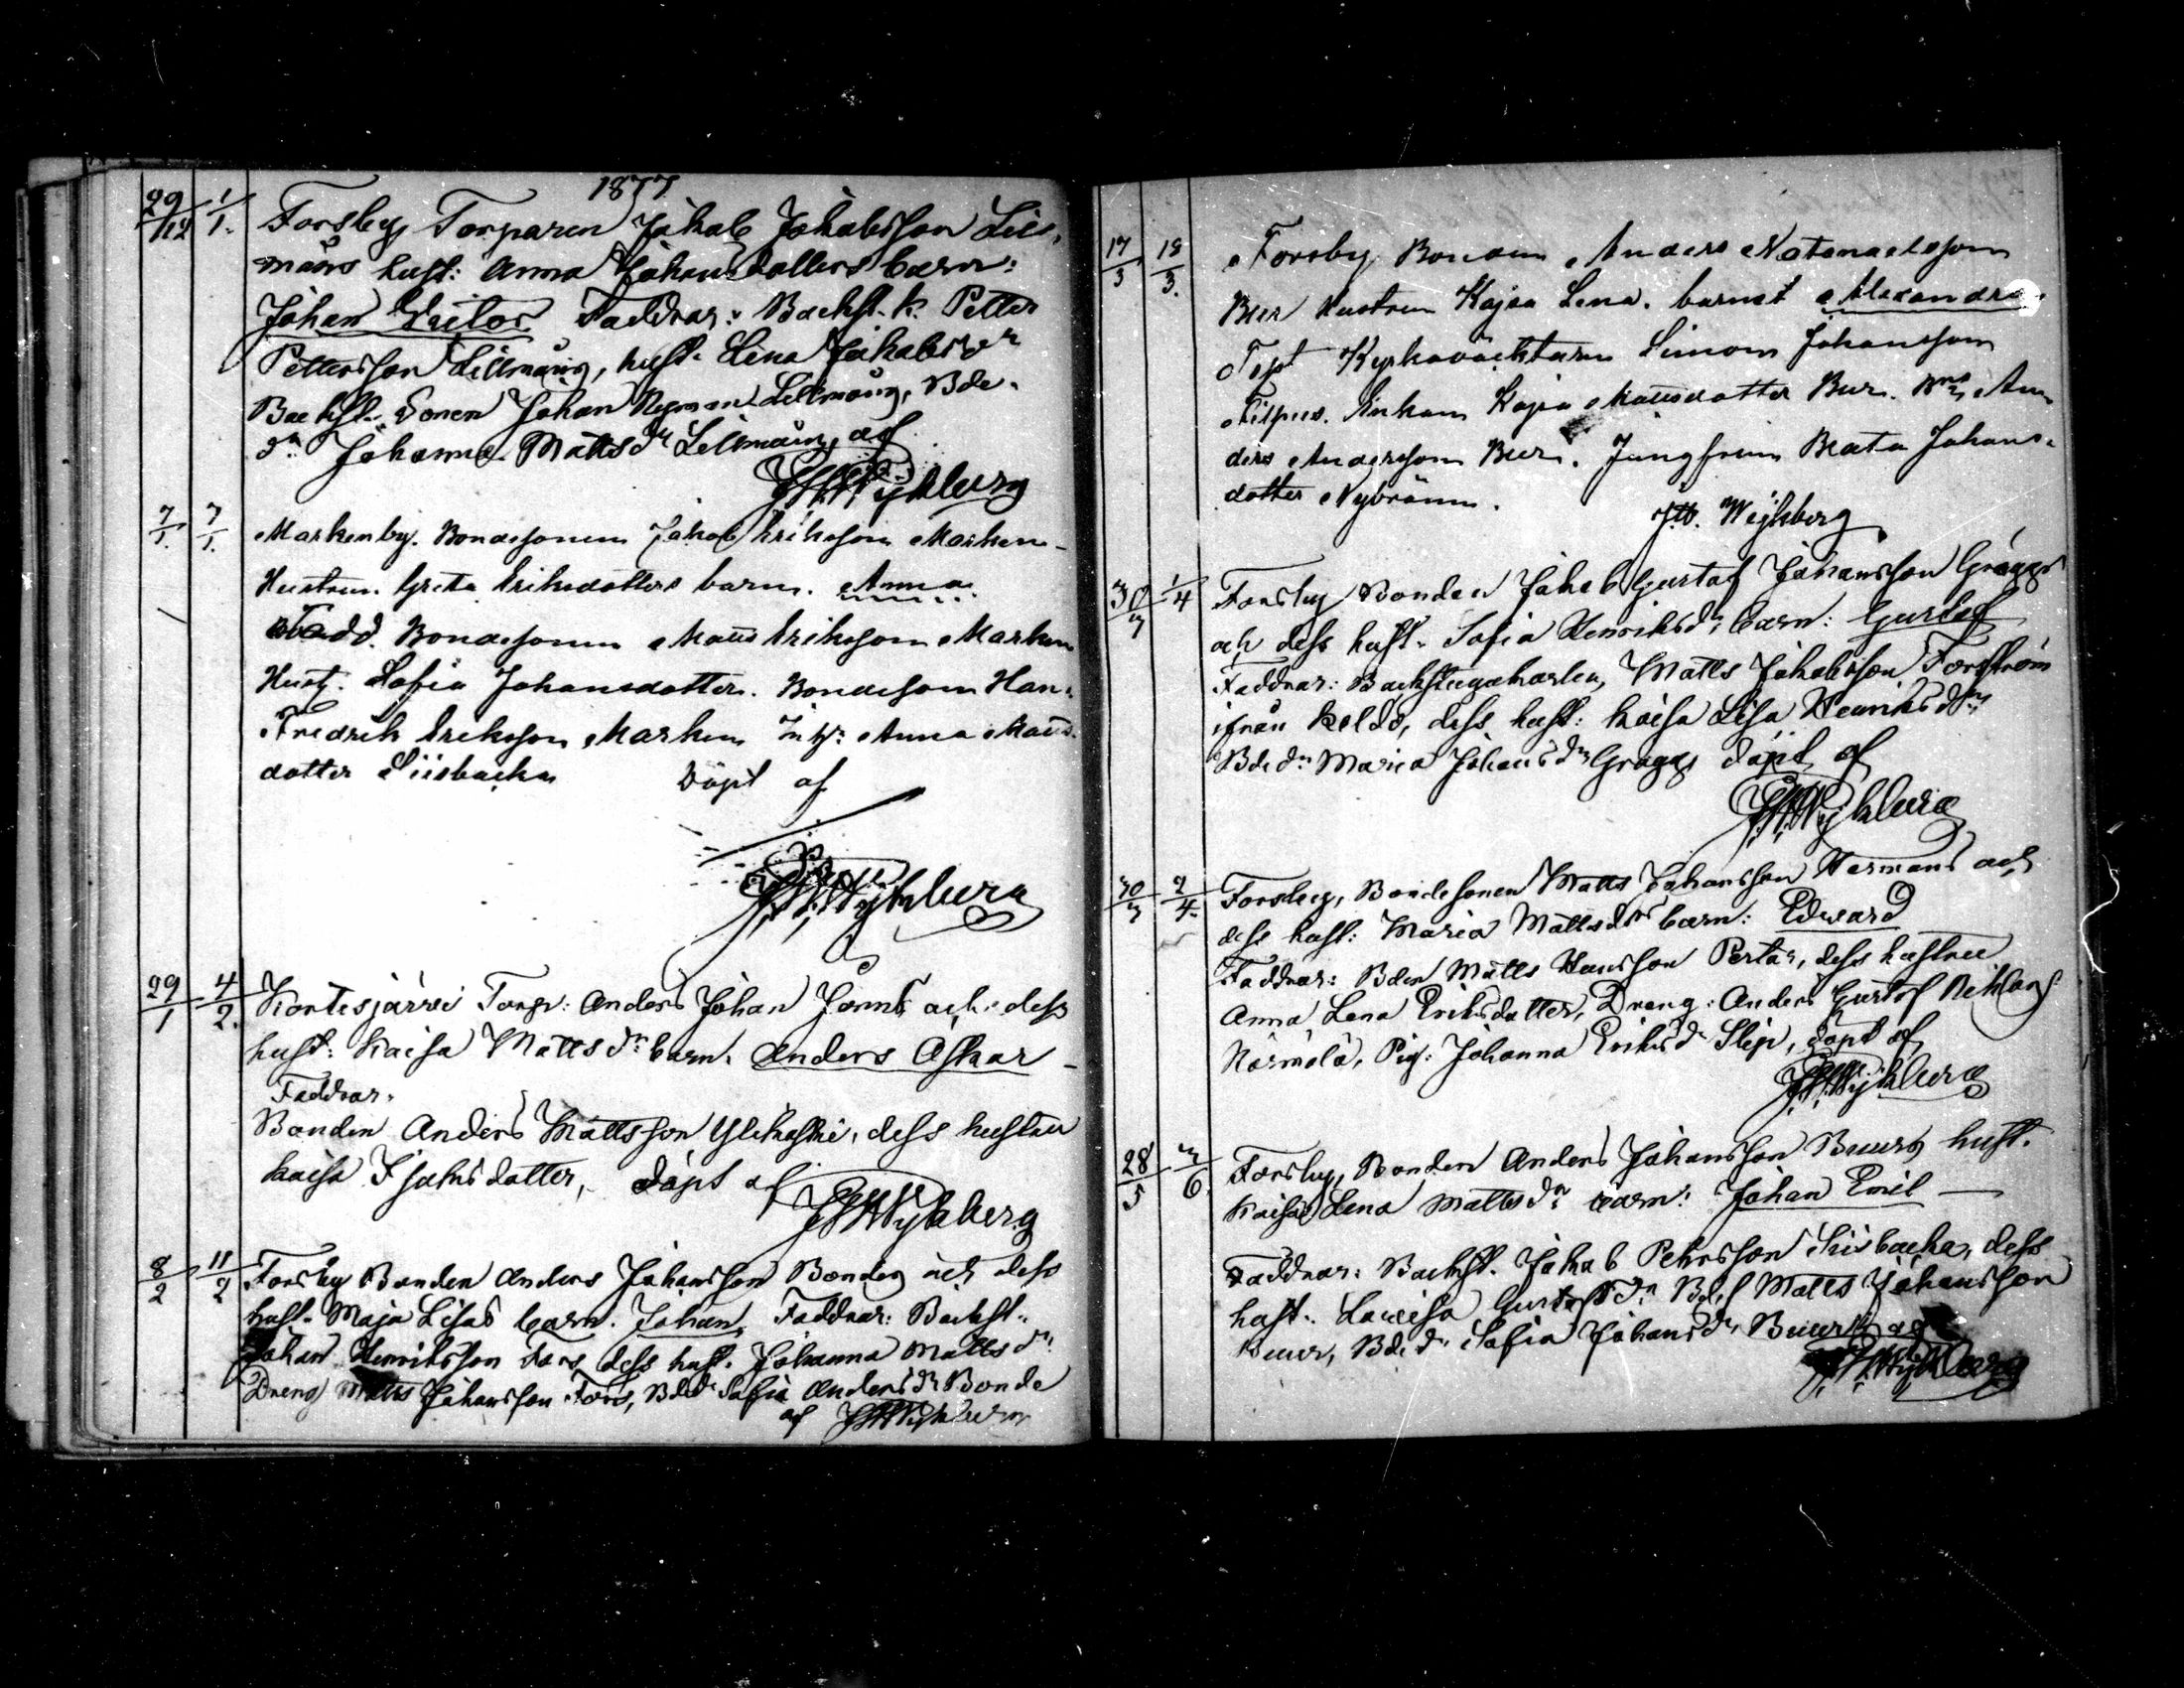 1877
29/12 1/1. Forsby Torparen Jakob Jakobsson Lill-
måns hust: Anna Johansdotters barn:
Johan Viktor Faddrar: Backst.k. Petter
Pettersson Lillmång, hust. Lena Jakobsdr
Backst. Sonen Johan Lillmång, Bde-
dr Johanna Mattsdr Lillmång, af
Wijkberg
7/1. 7/1. Markenby. Bondesonen Jakob Eriksson Marken-
Hustrun Greta Eriksdotters barn. Anna
Fadd. Bondesonen Matts Eriksson Marken
Hust. Sofia Johansdotter. Bondeson Han.
Fredrik Eriksson Marken Anna Matts-
dotter Siisbacka Döpt af
Wijkberg
29/1 4/2. Kortesjärvi Torp: Anders Johan och dess
hust: Kaisa Mattsdr barn. Anders Oskar -
Faddrar.
Bonden Anders Mattsson Ylikoski, dess hustru
Kaisa dotter, döpt af
Wijkberg
8/2 11/2 Forsby Bonden Anders Johansson Bondes och dess
hust. Maja Lisas barn. Johan, Faddrar: Backst..
Johan Henriksson Fors, dess hust. Johanna Mattsdr
Dreng Matts Johansson Fors, Bdedr Sofia Andersdr Bonde
af Wijkberg
17/3 18/3. Forsby Bonden Anders Natanaelsson
Bur Hustrun Kajsa Lena. barnet Alexandra.
Test Kyrkovaktaren Simon Johansson
Enkan Kajsa Mattsdotter Bur. An-
ders Andersson Bur. Jungfrun Beata Johans-
dotter Nybränn.
Wijkberg
30/3 1/4 Forsby Bonden Jakob Gustaf Johansson Graggs
och dess hust. Sofia Henriksdr barn: Gustaf
Faddrar: Backstugukarlen, Matts Jakobsson Forsström
ifrån dess hust: Kaisa Lisa Henriksdr
Bdedr Maria Johansdr Graggs döpt af
Wijkberg
30/3 2/4. Forsby, Bondesonen Matts Johansson Hermans och
dess hust: Maria Mattsdrs barn: Edward
Faddrar: Bden Matts Hansson Pertar, dess hustru
Anna Lena Eriksdotter, Dreng: Anders Gustaf
Pig: Johanna Eriksdr Slip, döpt af
Wijkberg
28/5 3/6. Forsby, Bonden Anders Johansson Buurs hust.
Kaisa Lena Mattsdr barn: Johan Emil —
Faddrar: Backst. Jakob Pehrsson Siisbacka, dess
hust. Lovisa Gustafsdr Bdes Matts Johansson
Buur, Bdedr Sofia Johansdr Buur, af
Wijkberg